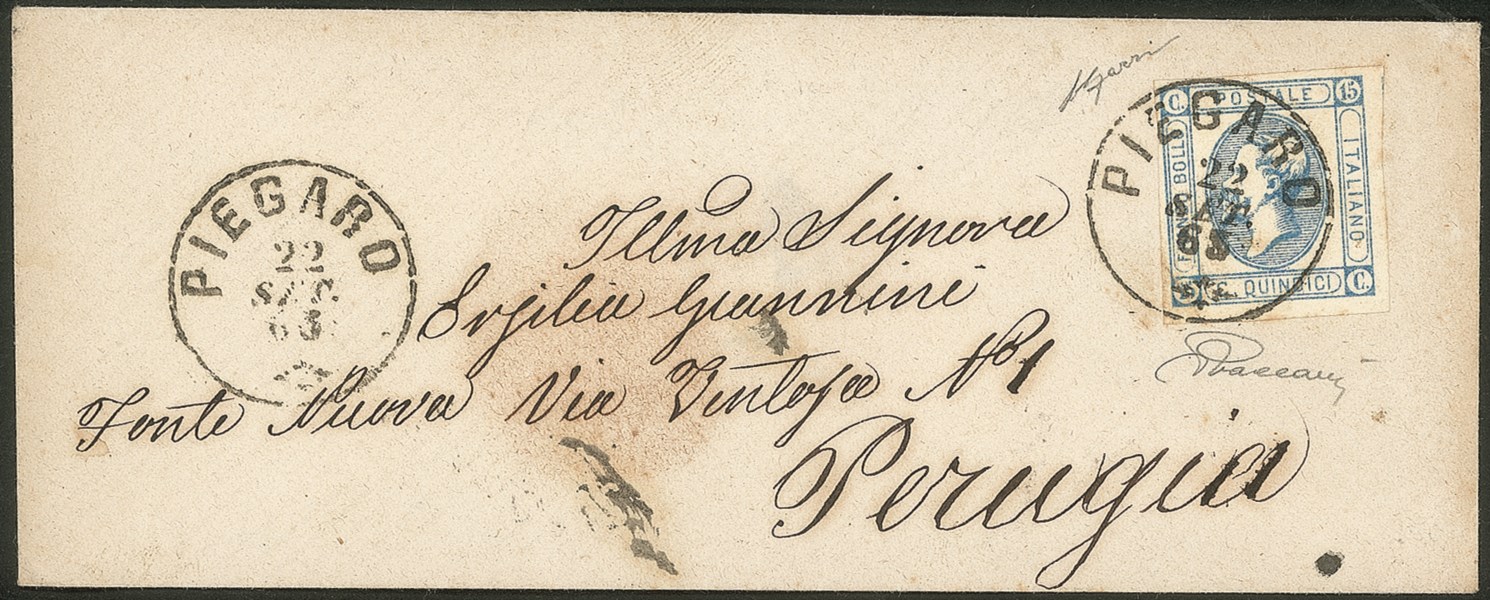 PIEGARO
22
SET.
63
PIEGARO
22
SET.
63
C. POSTALE 15
FRANCO BOLLO
ITALIANO
C. QUINDICI C.
Illma Signora
Ersilia Giannini
Fonte Nuova Via Ventosa No 1
Perugia